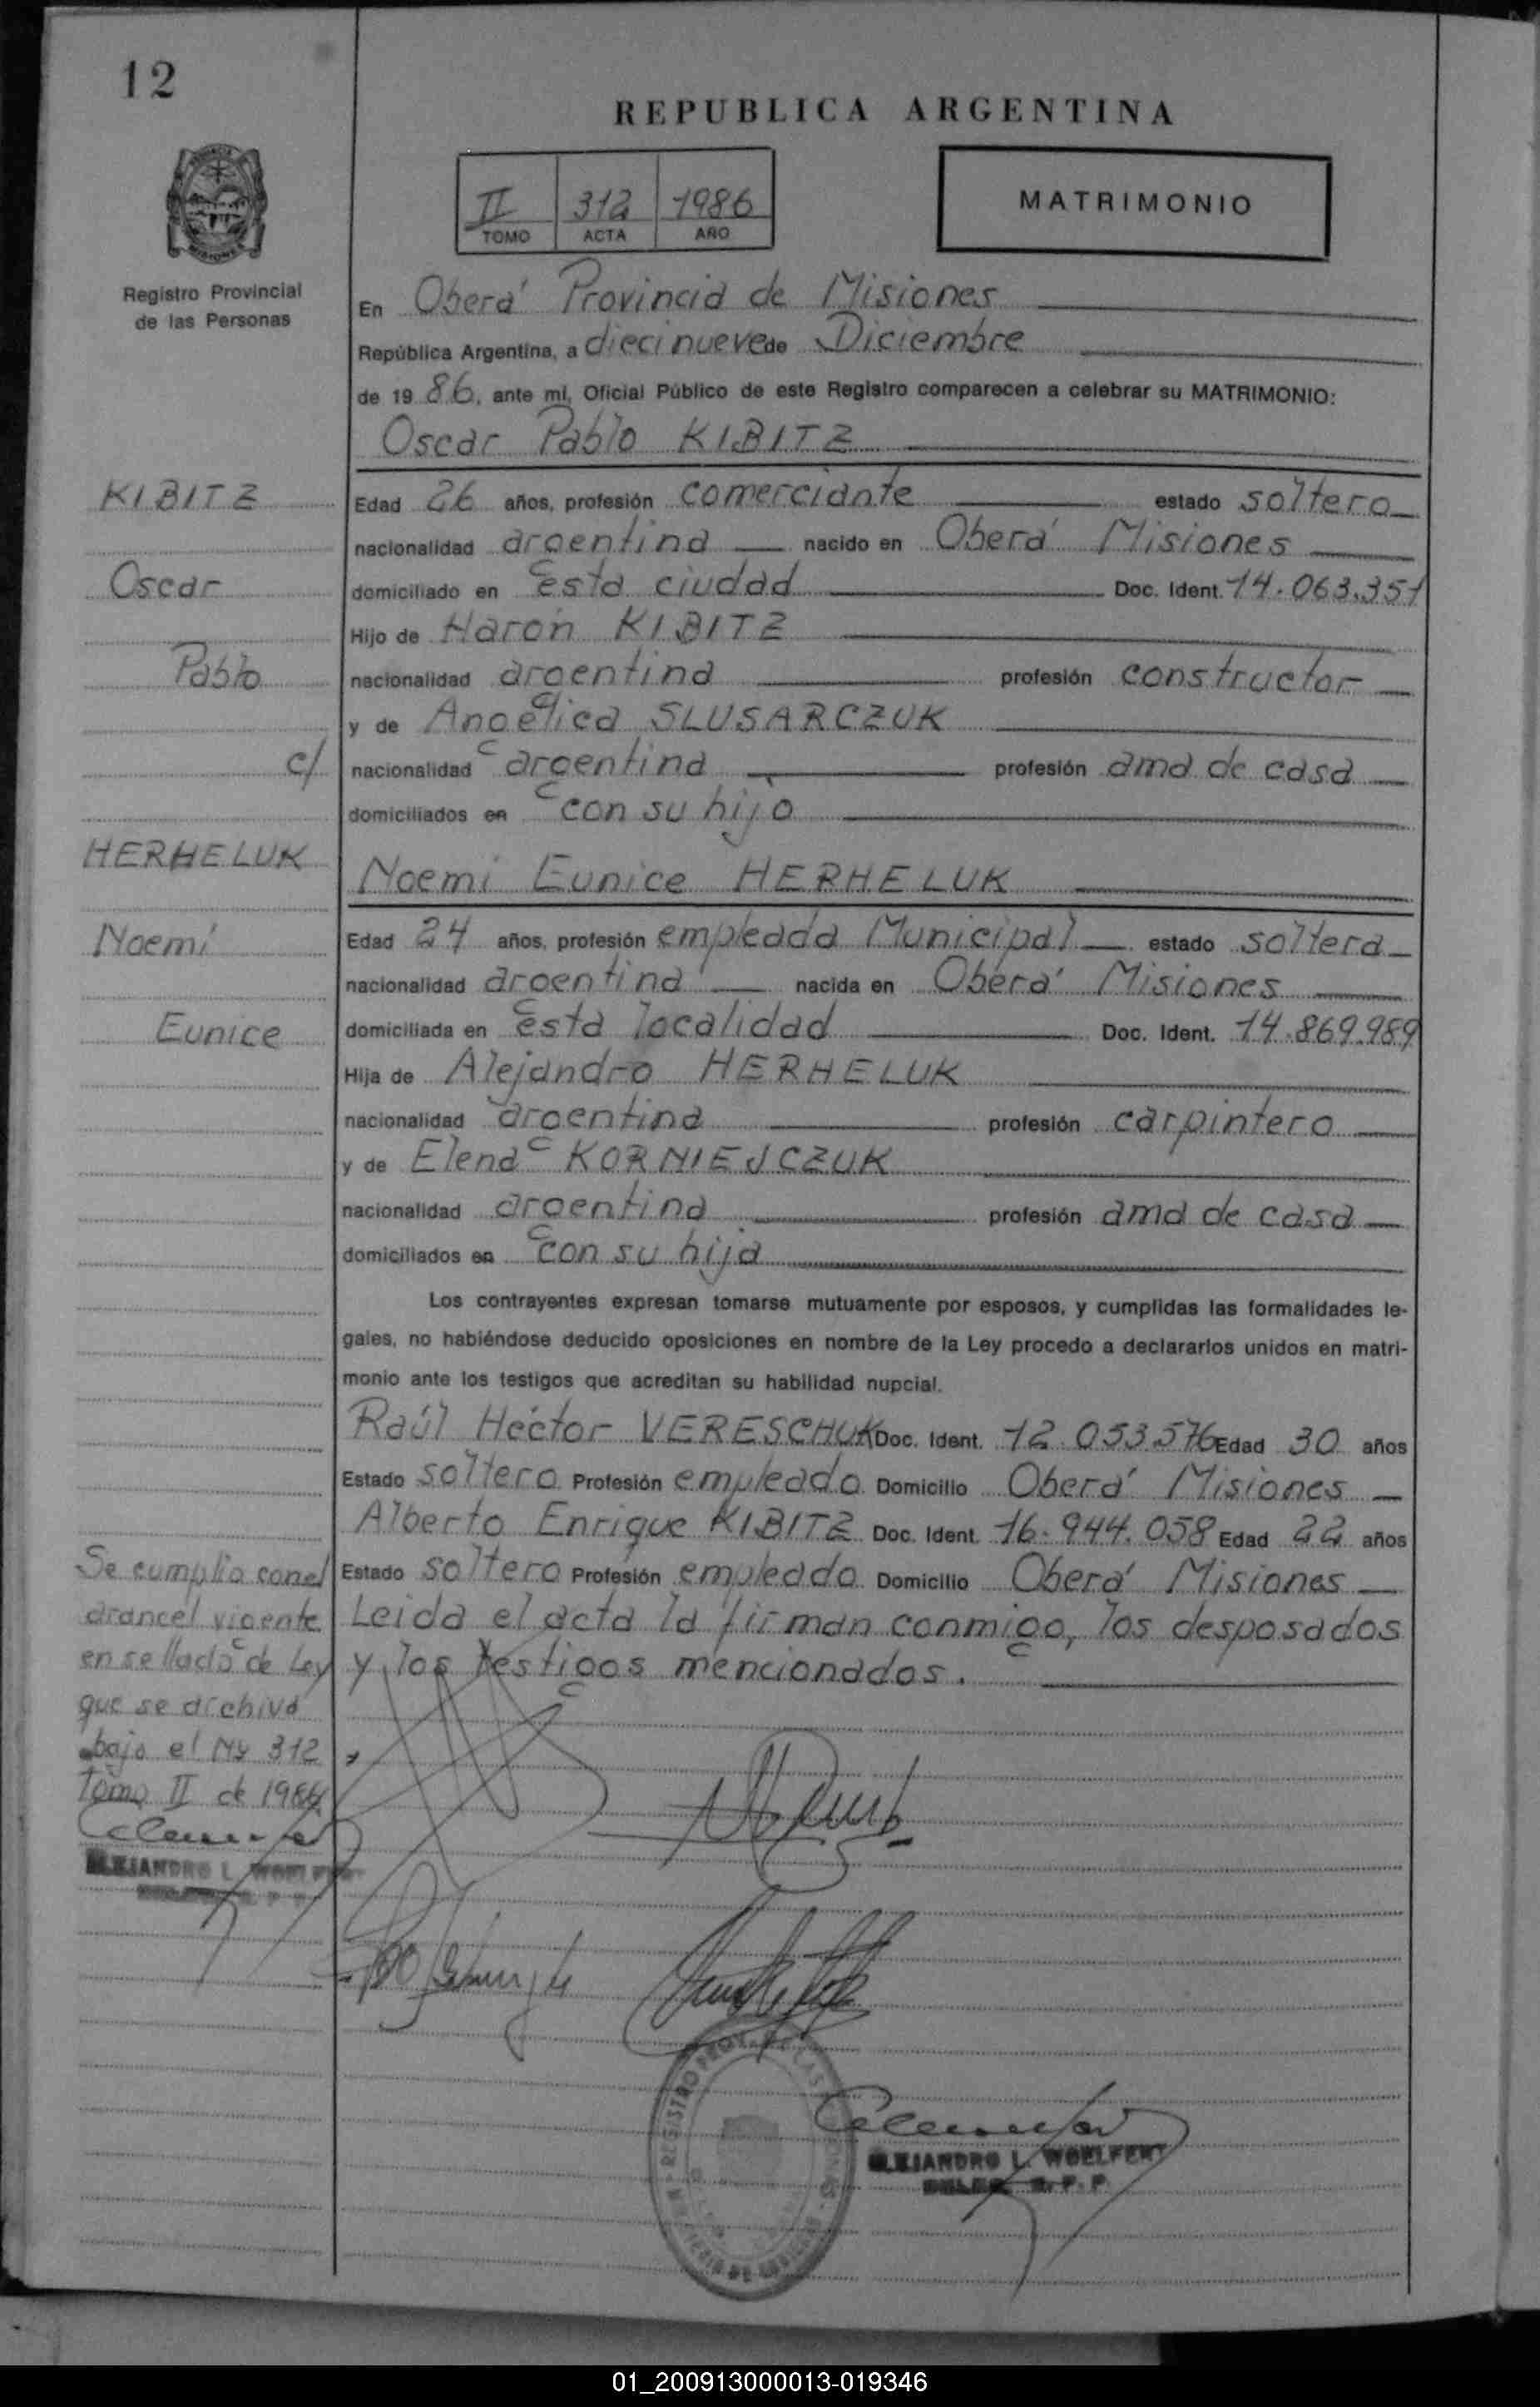 12
REPUBLICA ARGENTINA
II 312 1986
TOMO ACTA AÑO
MATRIMONIO
Registro Provincial
de las Personas
En Oberá Provincia de Misiones
República Argentina, a diecinueve de Diciembre
de 19 86, ante mí, Oficial Público de este Registro comparecen a celebrar su MATRIMONIO:
Oscar Pablo KIBITZ
KIBITZ
Edad 26 años, profesión comerciante estado soltero
nacionalidad argentina nacido en Oberá Misiones
Oscar
domiciliado en esta ciudad Doc. Ident. 14.063.351
Hijo de Harón KIBITZ
Pablo
nacionalidad argentina profesión constructor
y de Angélica SLUSARCZUK
c/
nacionalidad argentina profesión ama de casa
domiciliados en con su hijo
HERHELUK
Noemi Eunice HERHELUK
Noemí
Edad 24 años, profesión empleada Municipal estado soltera
nacionalidad argentina nacida en Oberá Misiones
Eunice
domiciliada en esta localidad Doc. Ident. 14.869.989
Hija de Alejandro HERHELUK
nacionalidad argentina profesión carpintero
y de Elena KORNIEJCZUK
nacionalidad argentina profesión ama de casa
domiciliados en con su hija
Los contrayentes expresan tomarse mutuamente por esposos, y cumplidas las formalidades le-
gales, no habiéndose deducido oposiciones en nombre de la Ley procedo a declararlos unidos en matri-
monio ante los testigos que acreditan su habilidad nupcial.
Raúl Héctor VERESCHUK Doc. Ident. 12.053.576 Edad 30 años
Estado soltero Profesión empleado Domicilio Oberá Misiones
Alberto Enrique KIBITZ Doc. Ident. 16.944.058 Edad 22 años
Estado soltero Profesión empleado Domicilio Oberá Misiones
Leida el acta la firman conmigo, los desposados
y los testigos mencionados.
Se cumplio con el
arancel vigente
en sellado de Ley
que se archiva
bajo el Nº 312
Tomo II de 1986
ALEJANDRO L. WOELFERT
ALEJANDRO L. WOELFERT
DELEG. R. P. P.
01_200913000013-019346